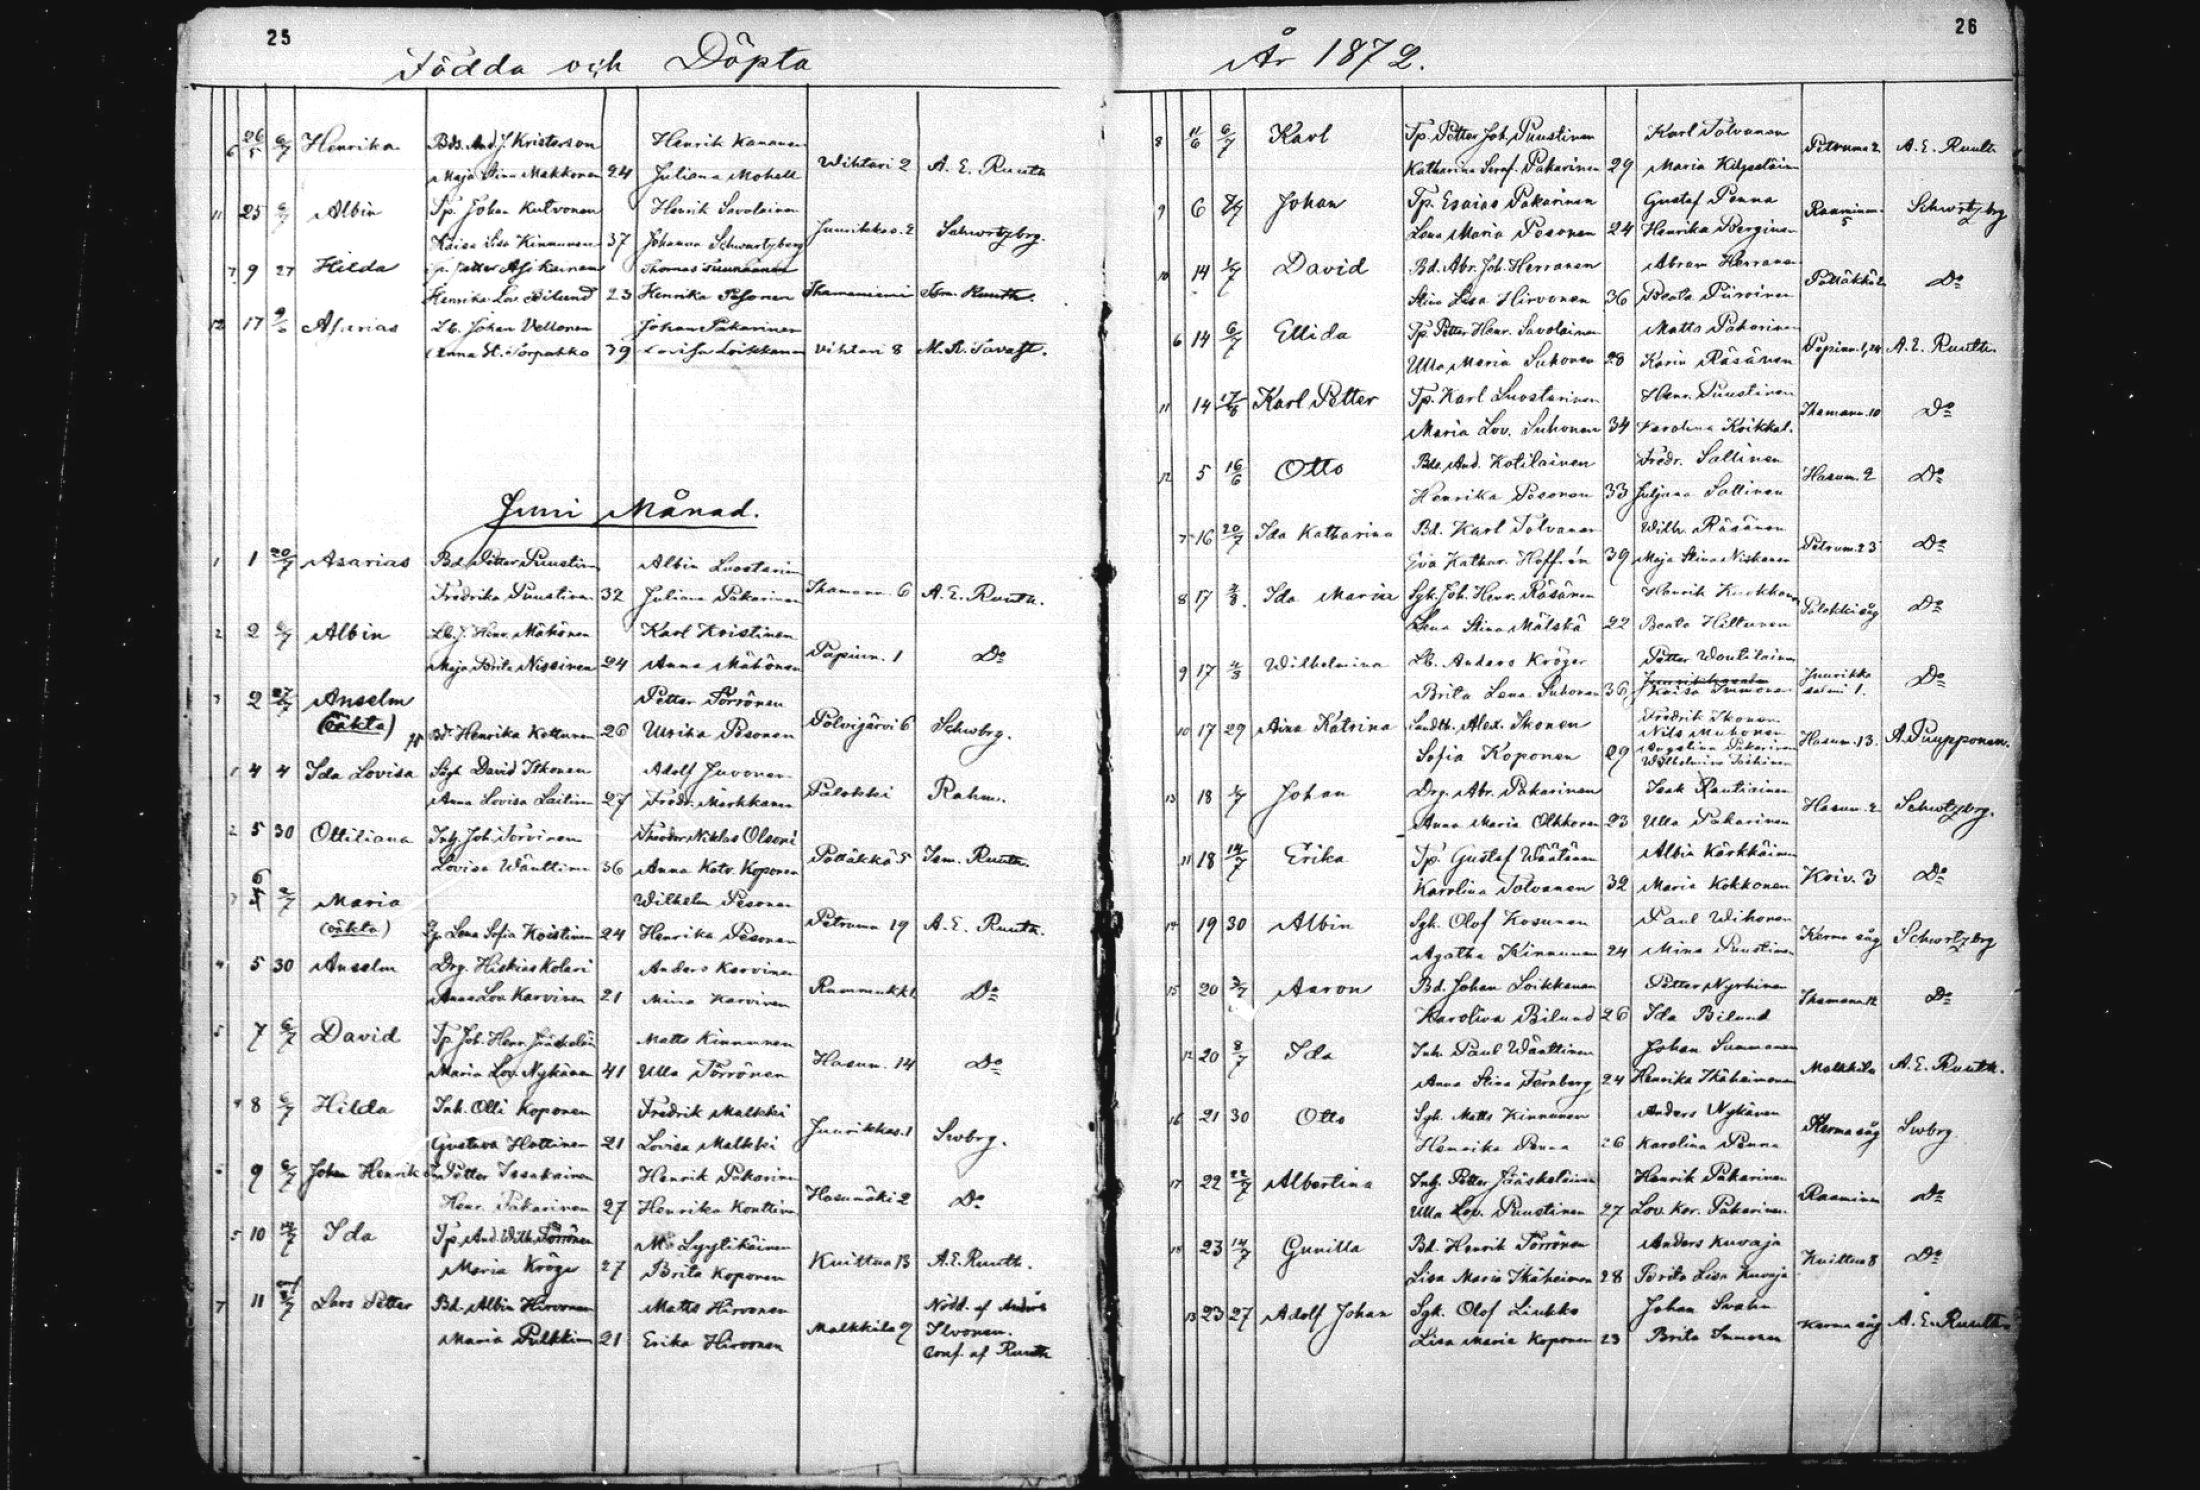 25
Födda och Döpta
6 26/5 6/7 Henrika Bds. And. J. Kristerson Henrik Kananen
Maja Stina Makkonen 24 Juliana Mohell Wihtari 2 A. E. Ruuth
11 25 6/7 Albin Tp. Johan Kutvonen Henrik Savolainen
Kaisa Lisa Kinnunen 37 Johanna Schwartzberg Juurikkas. 2 Schwrtzbrg.
7 9 27 Hilda Tp. Petter Asikainen Thomas
Henrika Lov. Bilund 23 Henrika Pesonen Thamaniemi Ism. Ruuth.
12 17 Asarias Lb. Johan Vellonen Johan Pakarinen
Anna St. Torpakko 39 Lovisa Loikkanen Vihtari 8 M. A. Tavast.
Juni Månad.
1 1 20/7 Asarias Bd. Petter Puustin Albin Luostarin
Fredrika Puustinen 32 Juliana Pakarinen Thamann. 6 A. E. Ruuth.
2 2 6/7 Albin Lb. J. Henr. Mähönen Karl Koistinen
Maja Brita Nissinen 24 Anna Mähönen Papinn. 1 Do
3 2 27/7 Anselm Petter Törrönen
(oäkta) Bd. Henrika Kettunen 26 Ulrika Pesonen Polvijärvi 6 Schwbrg.
1 4 4 Ida Lovisa Sågk. David Itkonen Adolf Juvonen
Anna Lovisa Laitin 27 Fredr. Markkanen Palokki Rahm.
2 5 30 Ottiliana Inh. Joh. Torvinen Theodor Niklas Olsoni
Lovisa Wänttinen 36 Anna Katr. Koponen Pölläkkä 5 Ism. Ruuth.
3 6 2/7 Maria Wilhelm Pesonen
(oäkta) Lena Sofia Koistinen 24 Henrika Pesonen Petruma 19 A. E. Ruuth.
4 5 30 Anselm Drg. Hiskias Kolari Anders Karvinen
Anna Lov. Karvinen 21 Mina Karvinen Rummukk. Do
5 7 6/7 David Tp. Joh. Henr. Jääskeläin Matts Kinnunen
Maria Lov. Nykänen 41 Ulla Törrönen Hasum. 14 Do
4 8 6/7 Hilda Inh. Olli Koponen Fredrik Malkki
Gustava Hottinen 21 Lovisa Malkki Juurikkas. 1 Swbrg.
6 9 6/7 Johan Henrik Petter Issakainen Henrik Pakarinen
Henr. Pakarinen 27 Henrika Konttinen Hasumäki 2 Do
5 10 14/7 Ida Tp. And. Wilh. Törrönen M. Lyytikäinen
Maria Kröger 27 Brita Koponen Kuittua 13 A. E. Ruuth.
7 11 Lars Petter Bd. Albin Hirvonen Matts Hirvonen Nödd. af Anders
Maria Pulkkin 21 Erika Hirvonen Malkkila 9 Ilvonen.
Conf. af Ruuth
26
År 1872.
8 11/6 6/7 Karl Tp. Petter Joh. Puustinen Karl Tolvanen
Katharina Seraf. Pakarinen 29 Maria Kilpeläin Petruma 2 A. E. Ruuth
9 6 Johan Tp. Esaias Pakarinen Gustaf Penna
Lena Maria Pesonen 24 Henrika Berginen Raaminm. 5 Schwrtzbrg
10 14 David Bd. Abr. Joh. Herranen Abram Herranen
Stina Lisa Hirvonen 36 Beata Piiroinen Pölläkkä 2 Do
6 14 6/7 Ellida Tp. Petter Henr. Savolainen Matts Pakarinen
Ulla Maria Suhonen 28 Karin Räsänen Papinn. 1, 24 A. E. Ruuth.
11 14 17/8 Karl Petter Tp. Karl Luostarinen Henr. Puustinen
Maria Lov. Suhonen 34 Karolina Koikkal. Thamann. 10 Do
12 5 16/6 Otto Bds. And. Kotilainen Fredr. Sallinen
Henrika Pesonen 33 Juljana Sallinen Hasum. 2 Do
7 16 20/7 Ida Katharina Bd. Karl Tolvanen Wilh. Räsänen
Eva Kathar. Hoffrén 39 Maja Stina Niskanen Petrum. 23 Do
8 17 4/8 Ida Maria Sgk. Joh. Henr. Räsänen Henrik Kuokkanen
Lena Stina Mälskä 22 Beata Hiltunen Palokki såg Do
9 17 4/8 Wilhelmina Lb. Anders Kröger Petter Woutilainen
Brita Lena Suhonen 36 Kaisa Immonen Juurikkasalmi 1. Do
10 17 29 Aina Katrina Landth. Alex. Ikonen Fredrik Ikonen
Nils Muhonen
Sofia Koponen 29 Augustina Pakarinen Hasum. 13. A. Puupponen.
Wilhelmina Toskinen
13 18 Johan Drg. Abr. Pakarinen Isak Rautiainen
Anna Maria Olkkonen 23 Ulla Pakarinen Hasum. 2 Schwtzbrg.
11 18 14/7 Erika Tp. Gustaf Wäätänen Albin Kärkkäinen
Karolina Tolvanen 32 Maria Kokkonen Koiv. 3 Do
14 19 30 Albin Sgk. Olof Kosunen Paul Wihonen
Agatha Kinnunen 24 Mina Puustinen Kerma såg Schwrtzbrg
15 20 3/7 Aaron Bd. Johan Loikkanen Petter Nyrhinen
Karolina Bilund 26 Ida Bilund Thamann. 12 Do
12 20 8/7 Ida Inh. Paul Wänttinen Johan Summanen
Anna Stina Fernberg 24 Henrika Ikäheimonen Malkkila A. E. Ruuth.
16 21 30 Otto Sgk. Matts Kinnunen Anders Nykänen
Henrika Penna 26 Karolina Penna Kerma såg Swbrg
17 22 22/7 Albertina Inh. Petter Jääskeläinen Henrik Pakarinen
Ulla Lov. Puustinen 27 Lov. Kar. Pakarinen. Raaminm Do
18 23 14/7 Gunilla Bd. Henrik Törrönen Anders Kuvaja
Lisa Maria Ikäheimon 28 Brita Lisa Kuvaja Kuittua 8 Do
13 23 27 Adolf Johan Sgk. Olof Liukko Johan Svahn
Lisa Maria Koponen 23 Brita Immonen Kerma såg A. E. Ruuth